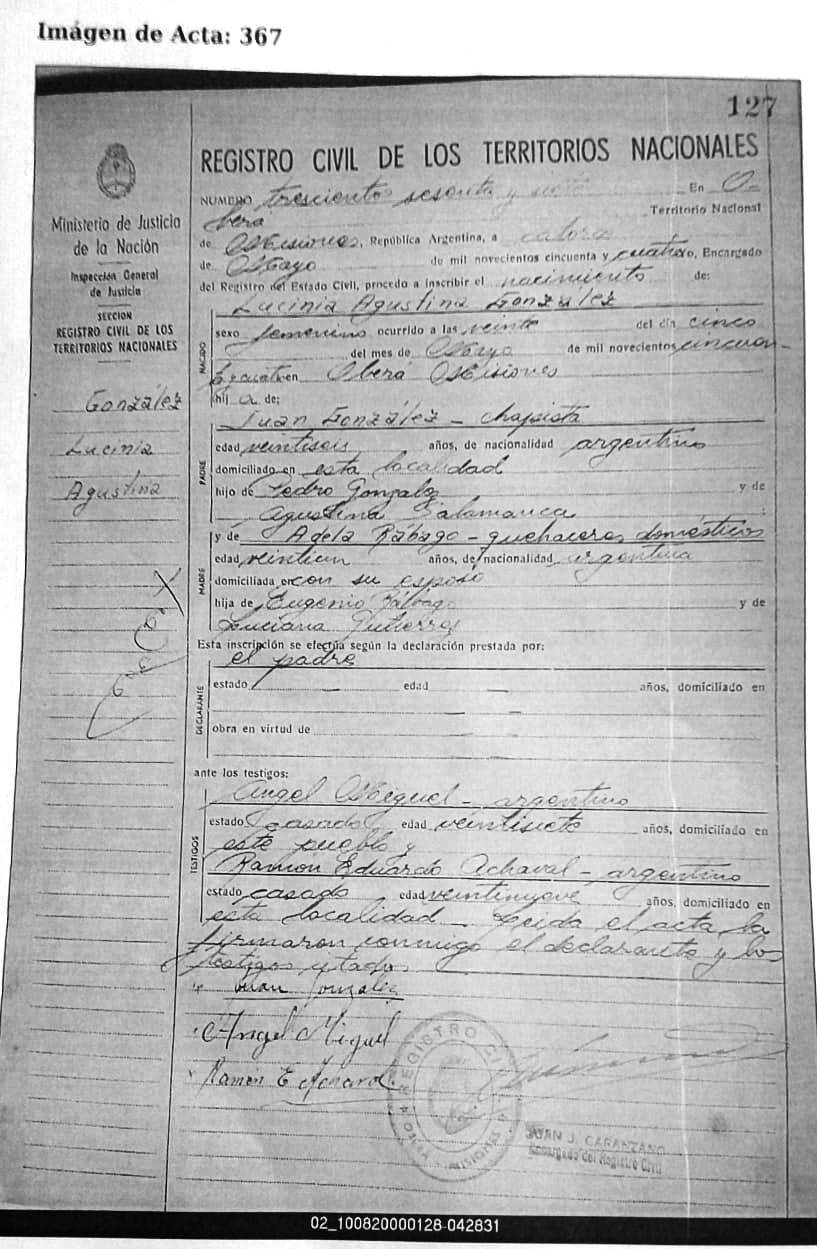 Imágen de Acta: 367
127
REGISTRO CIVIL DE LOS TERRITORIOS NACIONALES
Ministerio de Justicia
de la Nación
Inspección General
de Justicia
SECCION
REGISTRO CIVIL DE LOS
TERRITORIOS NACIONALES
González
Lucinia
Agustina
NUMERO trescientos sesenta y siete En O-
berá Territorio Nacional
de Misiones, República Argentina, a catorce
de Mayo de mil novecientos cincuenta y cuatro, Encargado
del Registro del Estado Civil, procedo a inscribir el nacimiento de:
Lucinia Agustina González
NACIDO
sexo femenino ocurrido a las veinte del día cinco
del mes de Mayo de mil novecientos cincuen-
ta y cuatro en Oberá Misiones
hij a de:
Juan González - chapista
PADRE
edad veintiseis años, de nacionalidad argentino
domiciliado en esta localidad
hijo de Pedro González y de
Agustina Salamanca
MADRE
y de Adela Rábago - quehaceres domésticos
edad veintiun años, de nacionalidad argentina
domiciliada en con su esposo
hija de Eugenio Rábago y de
Luciana Gutierrez
Esta inscripción se efectúa según la declaración prestada por:
el padre
DECLARANTE
estado edad años, domiciliado en
obra en virtud de
ante los testigos:
TESTIGOS
Angel Miguel - argentino
estado casado edad veintisiete años, domiciliado en
este pueblo y
Ramón Eduardo Achaval - argentino
estado casado edad veintinueve años, domiciliado en
esta localidad - Leida el acta la
firmaron conmigo el declarante y los
testigos citados
Juan Gonzalez
Angel Miguel
Ramón E Achaval
REGISTRO CIVIL
MISIONES
JUAN J. CARANZANO
Encargado del Registro Civil
02_100820000128-042831